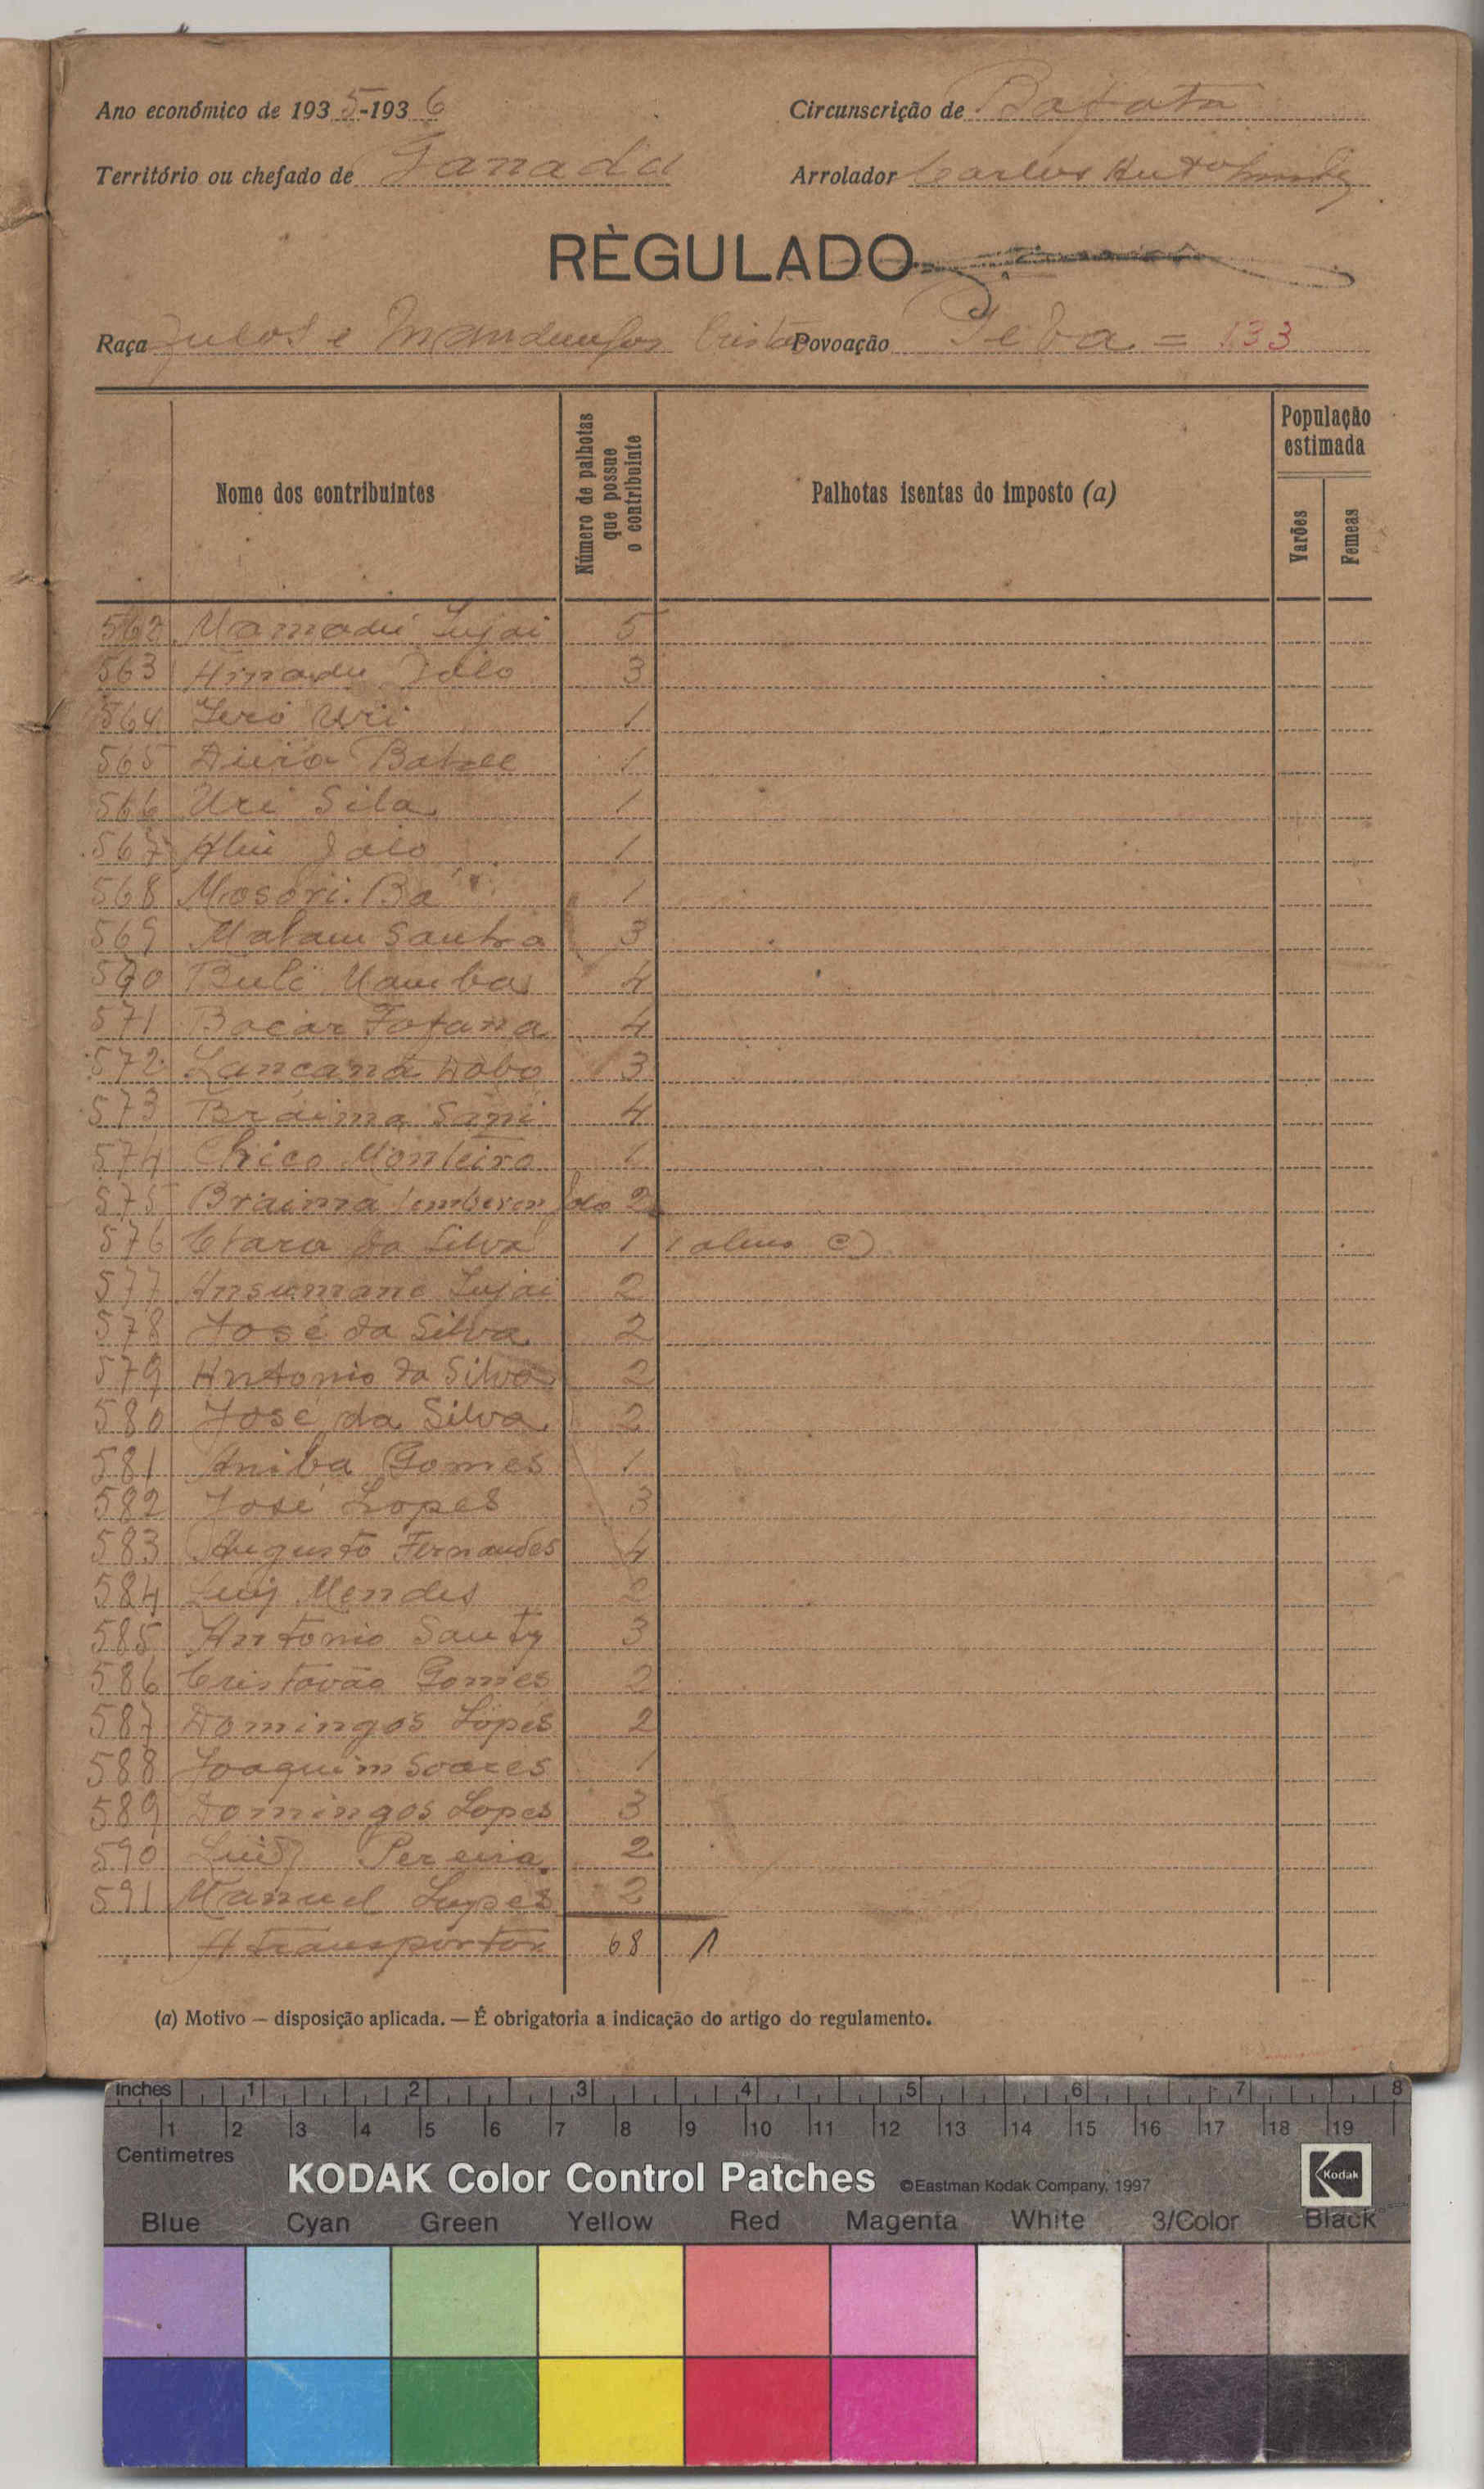 Ano económico de 1935-1936
Circunscrição de Bafata
Território ou chefado de Ganadu
Arrolador Carlos
RÈGULADO
Raça Fulos e Mandungos Cristãos
Povoação Geba = 133
Nome dos contribuintes
Número de palhotas que possue o contribuinte
Palhotas isentas do imposto (a)
População estimada
Varões
Femeas
562 Mamadú Lujai 5
563 Amadu Jalo 3
564 Iero Uri 1
565 Baldé 1
566 Uri Sila 1
567 Aliu Jalo 1
568 Mosori Ba 1
569 Malam Sanha 3
570 Buli Mambas 4
571 Bacar Fofana 4
572 Lancaná Dabó 3
573 Braima Sani 4
574 Chico Monteiro 1
575 Braima 2
576 Clara da Silva 1 1
577 Ansumane Lujai 2
578 José da Silva 2
579 Antonio da Silva 2
580 José da Silva 2
581 Aniba Gomes 1
582 José Lopes 3
583 Augusto Fernandes 4
584 Luiz Mendes 2
585 Antonio Santy 3
586 Cristovão Gomes 2
587 Domingos Lopes 2
588 Joaquim Soares 1
589 Domingos Lopes 3
590 Luiz Pereira 2
591 Manuel Lopes 2
A transportar 68 1
(a) Motivo — disposição aplicada. — É obrigatoria a indicação do artigo do regulamento.
inches 1 2 3 4 5 6 7 8
1 2 3 4 5 6 7 8 9 10 11 12 13 14 15 16 17 18 19
Centimetres
KODAK Color Control Patches ©Eastman Kodak Company, 1997 Kodak
Blue Cyan Green Yellow Red Magenta White 3/Color Black